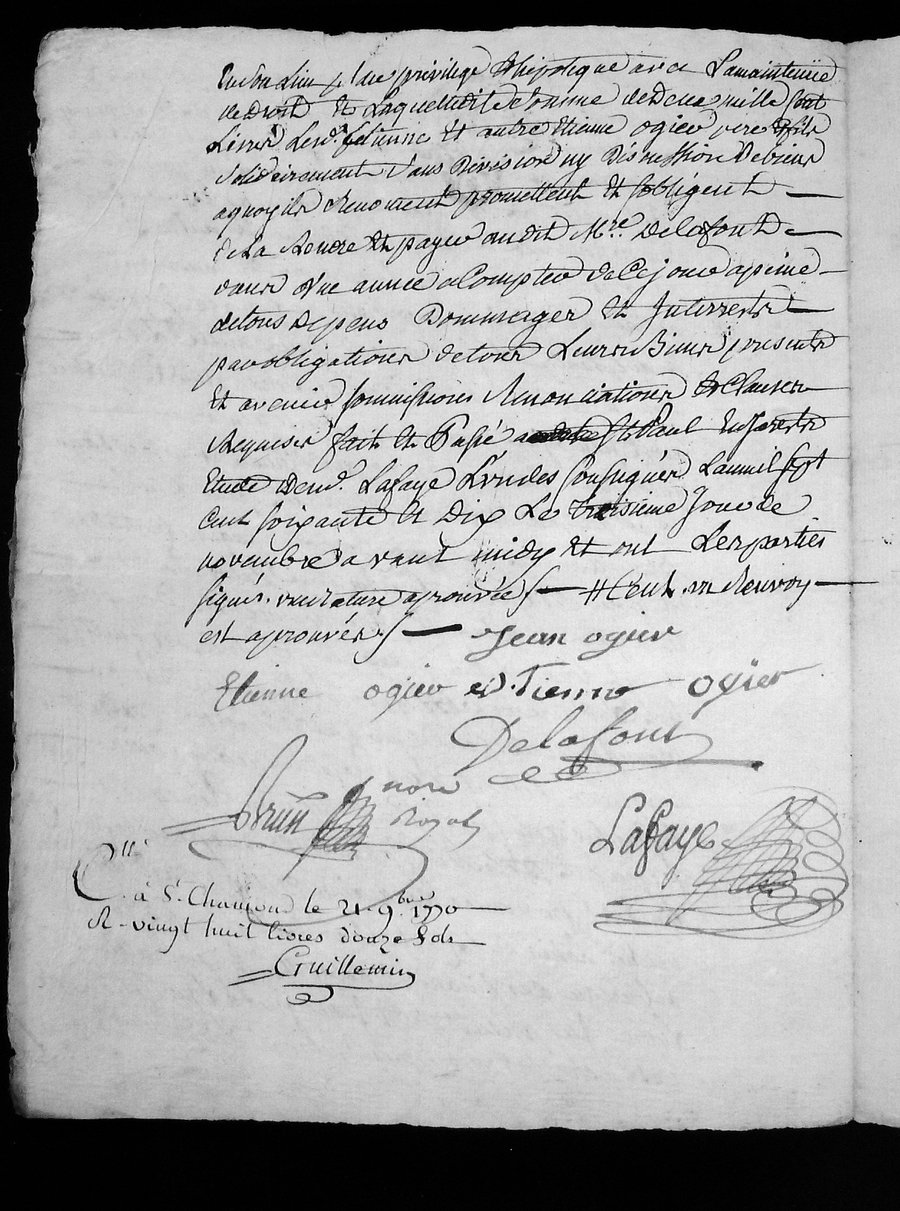 En son Lieu place privilege et hipoteque avec Lamaintenüe
de Droit Et Laquelledite Somme de Deux mille sept
Livres Lesd. s.rs Etienne Et autre Etienne ogier pere et fils
solidairement sans Division ny Discussion de biens
aquoy ils Renoncent promettent Et sobligent —
de La Rendre Et payer audit M.re Delafont —
dans Une année aCompter de Ce jour apeine —
detous Depens Dommages Et Interrests —
par obligations detous Leurs Biens presents
Et avenir soumissions Renonciations et Clauses
Requises fait Et Passé a St Paul En Jarests
Etude Dud. Lafaye L'un des soussignés Lanmil sept
Cent soixante Et Dix Le troisieme Jour de
novembre avant midy Et ont Les parties
signés. vaurature aprouvée /. — # Cent. un Renvoy —
est aprouvés /. — Jean ogier
Etienne ogier et. Tienne ogier
Delafont
Brun nore Royal
Lafaye
C.lle
à St Chamond le 21. 9.bre 1770 —
R - vingt huit livres douze sols —
Guillemin